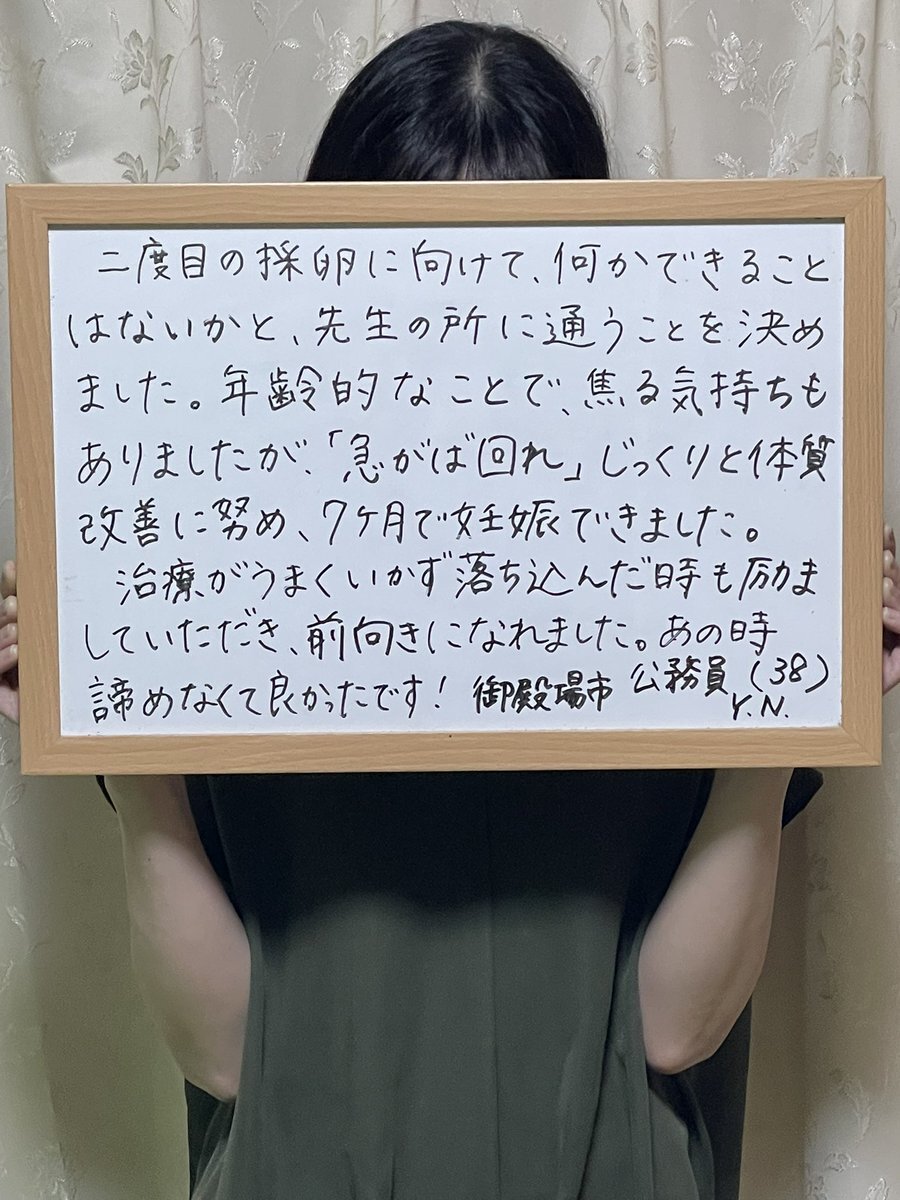 二度目の採卵に向けて、何かできること
はないかと、先生の所に通うことを決め
ました。年齢的なことで、焦る気持ちも
ありましたが、「急がば回れ」じっくりと体質
改善に努め、7ケ月で妊娠できました。
治療がうまくいかず落ち込んだ時も励ま
していただき、前向きになれました。あの時
諦めなくて良かったです! 御殿場市 公務員(38)
Y.N.